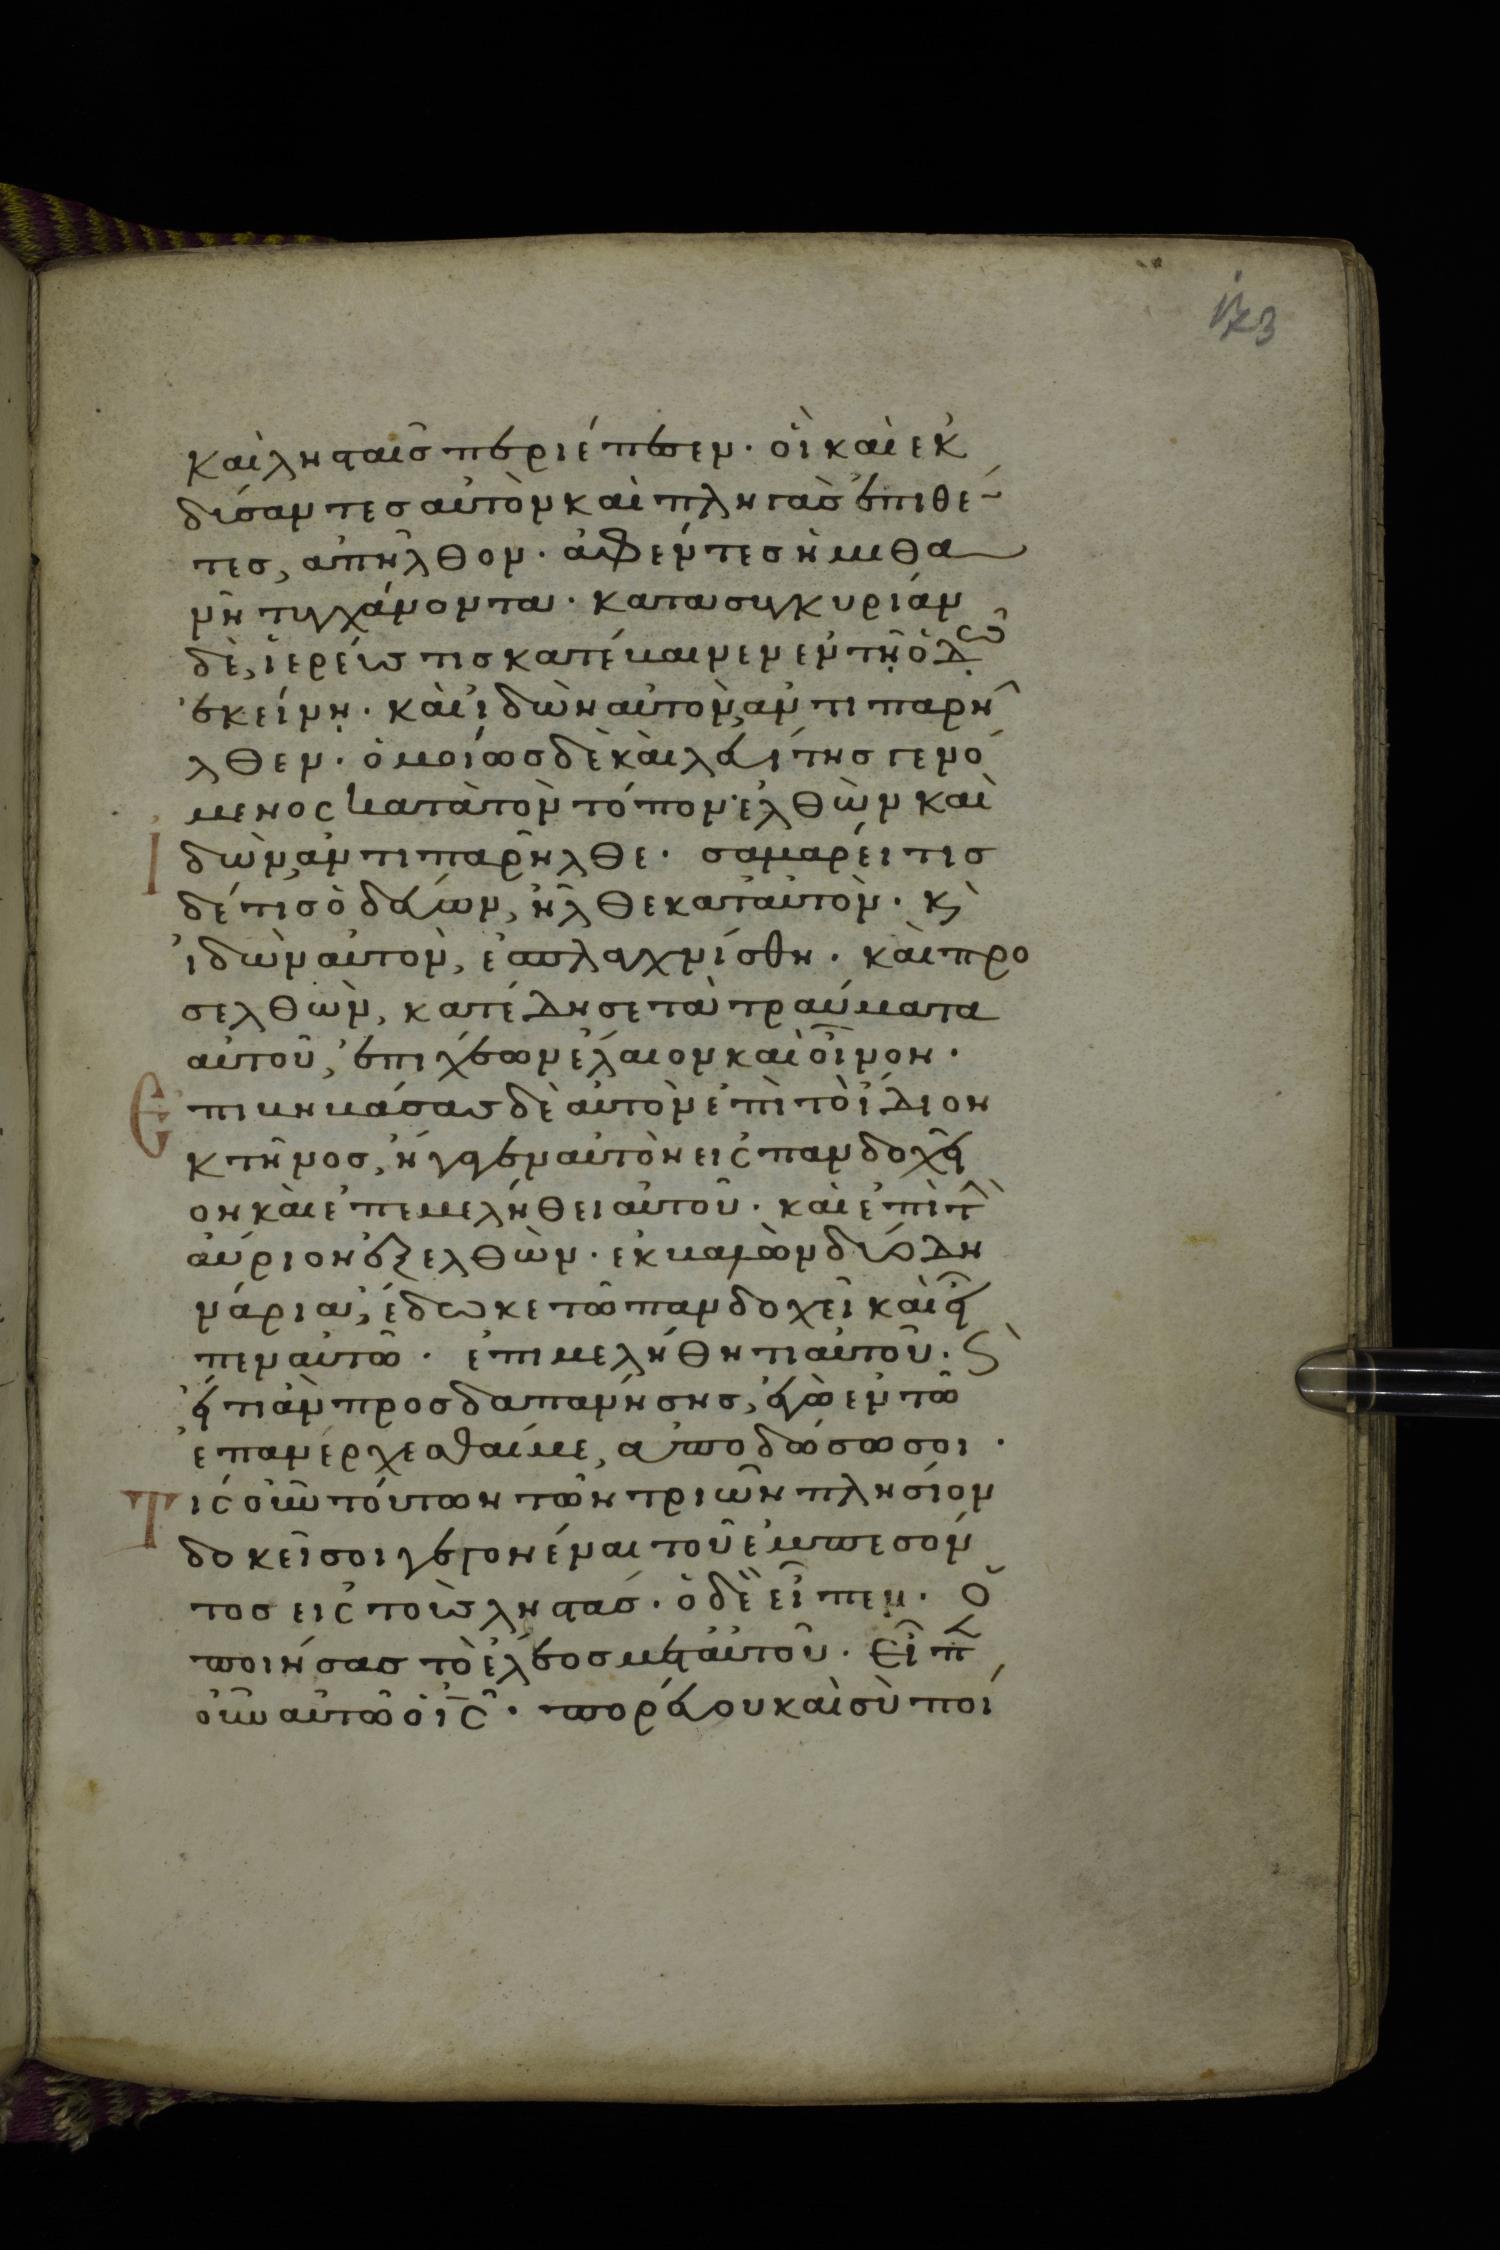 173
καὶ λησταῖς περιέπεσεν· οἳ καὶ ἐκ
δύσαντες αὐτὸν καὶ πληγὰς ἐπιθέ
τες, ἀπῆλθον· ἀφέντες ἡμιθα
νῆ τυγχάνοντα· κατασυγκυρίαν
δὲ, ἱερεύς τις κατέβαινεν ἐν τῇ ὁδῶ
ἐκείνῃ· καὶ ἰδὼν αὐτὸν, ἀντιπαρῆ
λθεν· ὁμοίως δὲ καὶ λευίτης γενό
μενος κατὰ τὸν τόπον· ἐλθὼν καὶ
ϊδὼν, ἀντιπαρῆλθε· σαμαρείτις
δέ τις ὁδεύων, ἦλθε κατ αὐτὸν· κὶ
ἰδὼν αὐτὸν, ἐσπλαχνίσθη· καὶ προ
σελθὼν, κατέδησε τὰ τραύματα
αὐτοῦ, ἐπιχέων ἔλαιον καὶ οἶνον·
Ἐπιβηβάσας δὲ αὐτὸν ἐπὶ τὸ ἴδιον
κτῆνος, ἤγαγεν αὐτὸν εἰς πανδοχεῖ
ον καὶ ἐπεμελήθει αὐτοῦ· καὶ ἐπὶ τὴν
αὔριον ἐξελθὼν· ἐκβαλὼν δύο δη
νάρια, ἔδωκε τῶ πανδοχεῖ καὶ εἶ
πεν αὐτῶ· ἐπιμελήθητι αὐτοῦ· κὶ
ὅ τι ἂν προσδαπανήσης, ἐγὼ ἐν τῶ
ἐπανέρχεσθαί με, ἀποδώσω σοι·
Τίς οὖν τούτων τῶν τριῶν πλησίον
δοκεῖ σοι γεγονέναι τοῦ ἐμπεσόν
τος εἰς τοὺς ληστάς· ὁ δὲ εἶπεν· Ὁ
ποιήσας τὸ ἔλεος μετ αὐτοῦ· Εἶπεν
οὖν αὐτῶ ὁ ις· πορεύου καὶ σὺ ποί